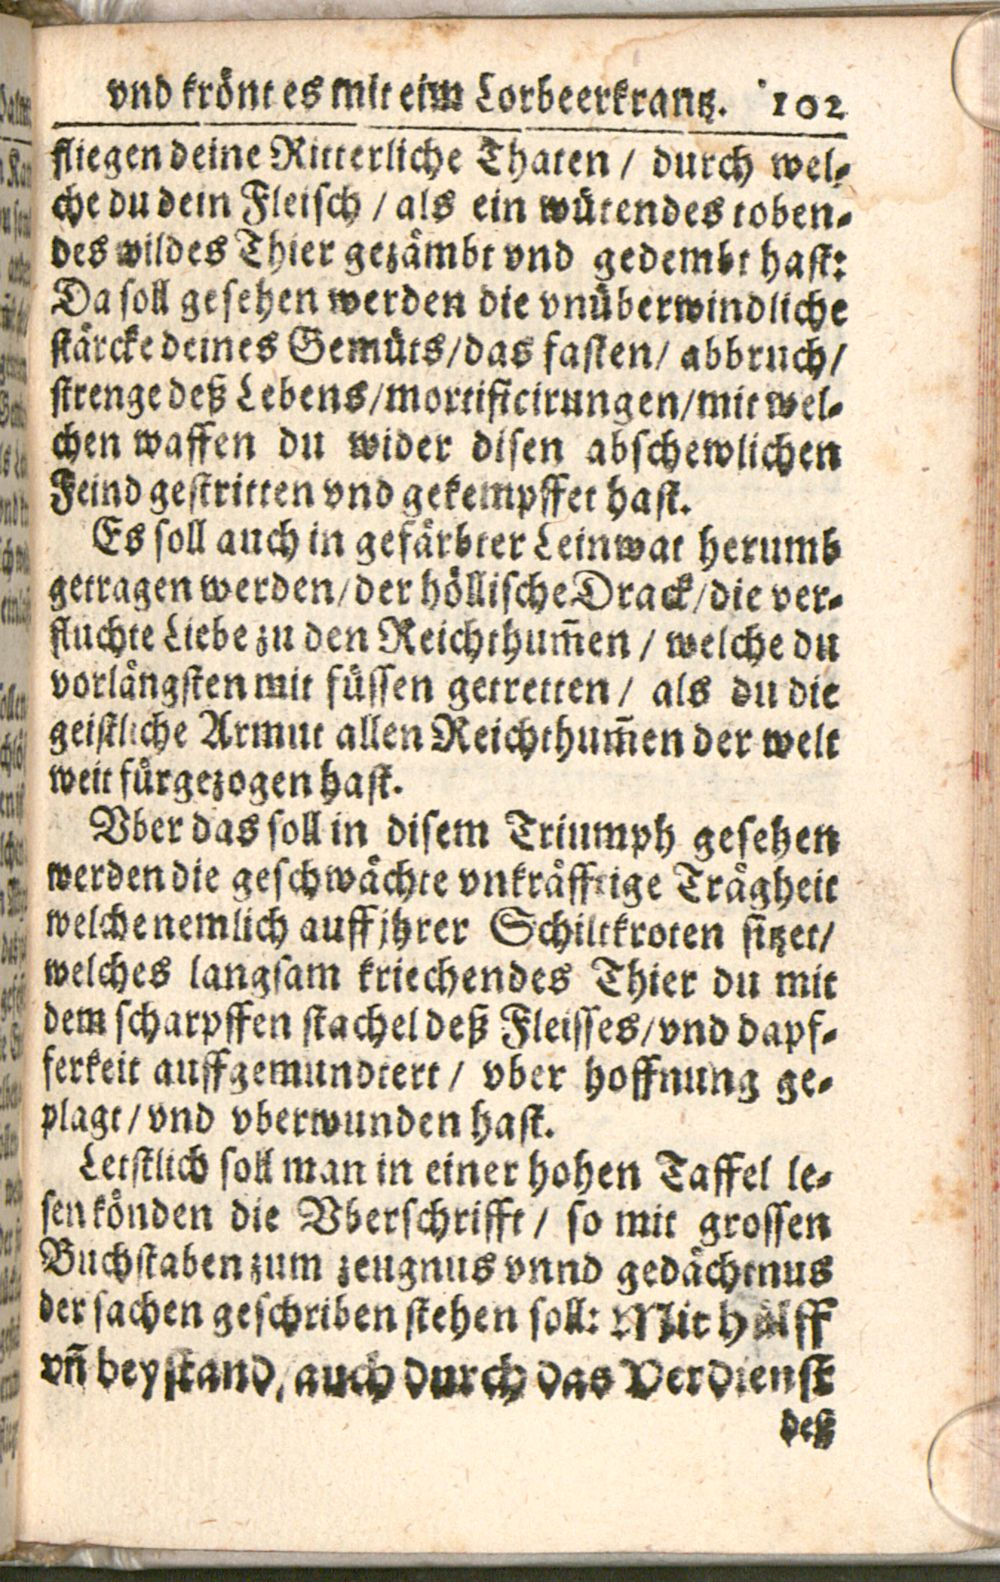 vnd krönt es mit eim Lorbeerkrantz. 102
fliegen deine Ritterliche Thaten / durch wel-
che du dein Fleisch / als ein wütendes toben-
des wildes Thier gezämbt vnd gedembt hast:
Da soll gesehen werden die vnüberwindliche
stärcke deines Gemüts/das fasten/ abbruch/
strenge deß Lebens/mortificirungen/mit wel-
chen waffen du wider disen abschewlichen
Feind gestritten vnd gekempffet hast.
Es soll auch in gefärbter Leinwat herumb
getragen werden/der höllische Drack/die ver-
fluchte Liebe zu den Reichthum̃en / welche du
vorlängsten mit füssen getretten / als du die
geistliche Armut allen Reichthum̃en der welt
weit fürgezogen hast.
Vber das soll in disem Triumph gesehen
werden die geschwächte vnkräfftige Trägheit
welche nemlich auff jhrer Schiltkroten sitzet/
welches langsam kriechendes Thier du mit
dem scharpffen stachel deß Fleisses/vnd dapf-
ferkeit auffgemundtert / vber hoffnung ge-
plagt/vnd vberwunden hast.
Letstlich soll man in einer hohen Taffel le-
sen könden die Vberschrifft / so mit grossen
Buchstaben zum zeugnus vnnd gedächtnus
der sachen geschriben stehen soll: Mit hülff
vñ beystand, auch durch das Verdienst
deß